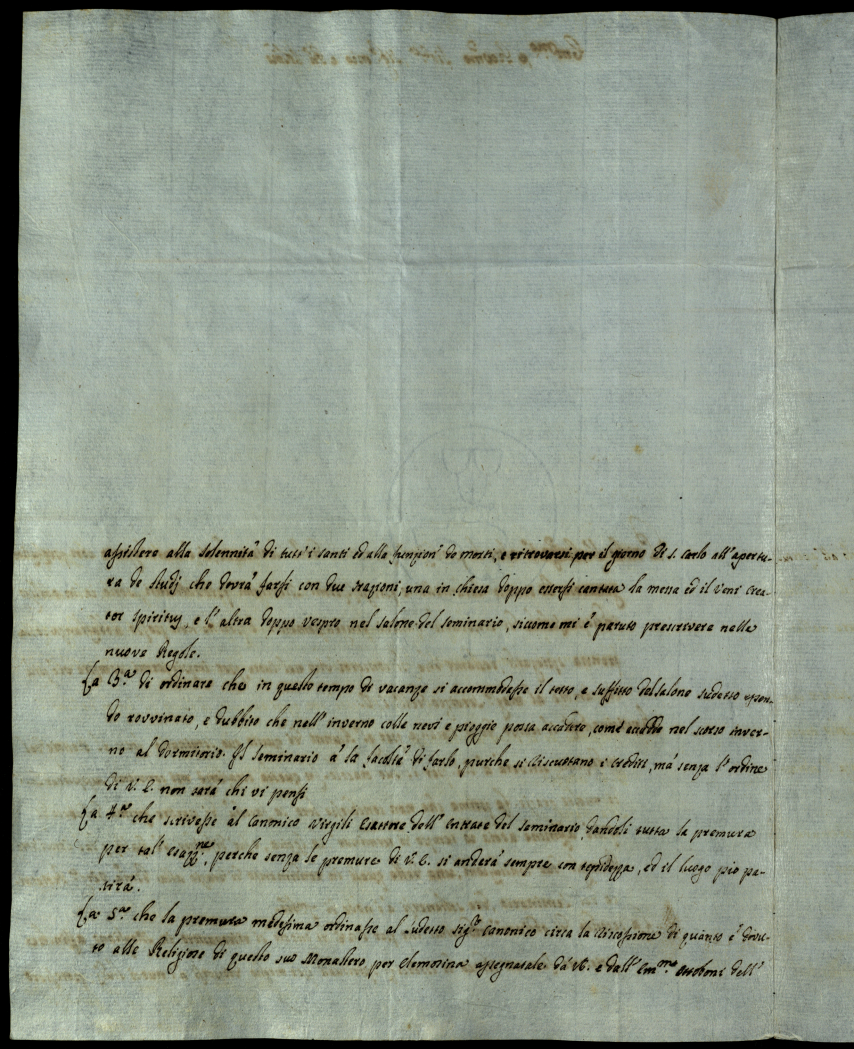 assistere alla solennità di tutt'i santi ed alla funzion' de morti, e ritrovarsi per il giorno di S. Carlo all'apertu-
ra de studij che dovrà farsi con due orazioni, una in chiesa doppo essersi cantata la messa ed il Veni Crea-
tor Spiritus, e l'altra doppo vespro nel salone del seminario, siccome mi è paruto prescrivere nelle
nuove Regole.
La 3.a di ordinare che in questo tempo di vacanze si accommodasse il tetto, e suffitto del salone sudetto essen-
do rovvinato, e dubbito che nell'inverno colle nevi e pioggie possa accadere, come accadde nel scorso inver-
no al dormitorio. Il seminario à la facoltà di farlo, purche si riscuotano i crediti, mà senza l'ordine
di V. E. non sarà chi vi pensi
La 4.a che scrivesse al Canonico Virgili Esattore dell'Entrate del seminario dandoli tutta la premura
per tal' esazz.ne, perche senza le premure di V. E. si anderà sempre con tepidezza, ed il luogo pio pa-
tirà.
La 5.a che la premura medesima ordinasse al sudetto sig.r Canonico circa la riscossione di quanto è dovu-
to alle Religiose di questo suo Monastero per elemosina assegnatale da V.E. e dall' Em.mo Ottoboni dell'